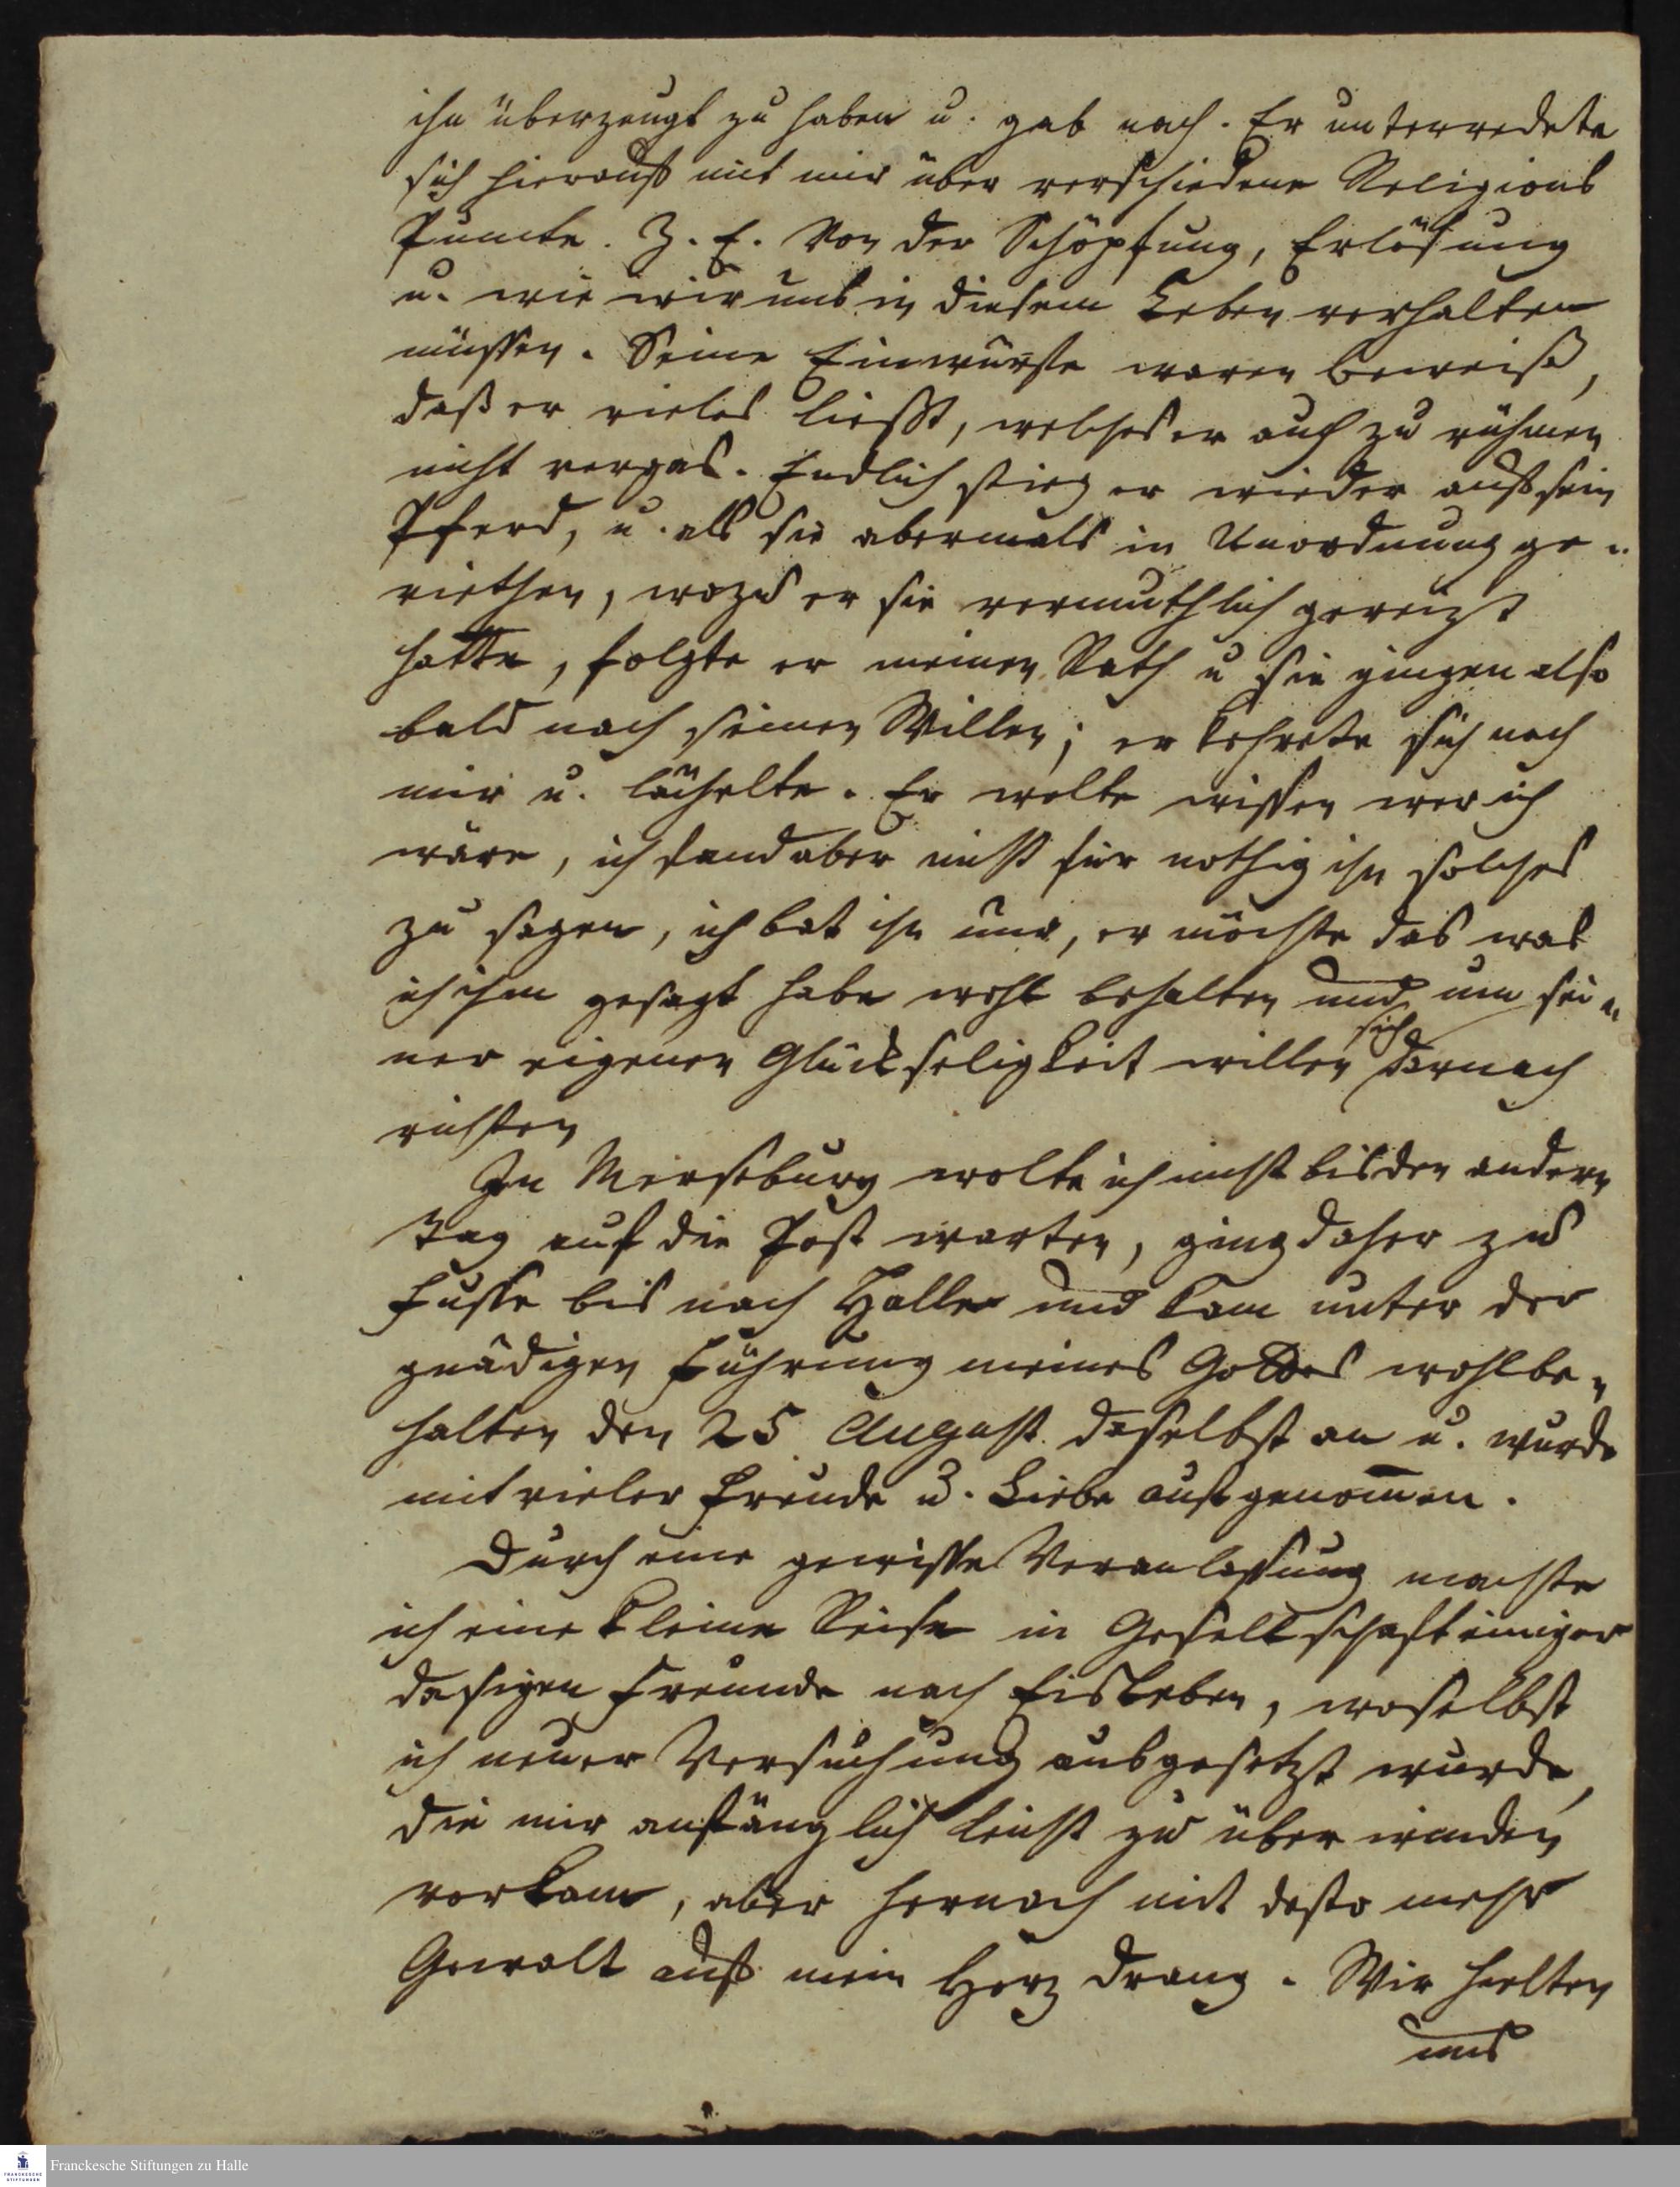 ihn überzeugt zu haben u. gab nach. Er unterredete
sich hierauf mit mir über verschiedene Religions
Puncte. Z. E. Von der Schöpfung, Erlösung
u. wie wir uns in diesem Leben verhalten
müssen. Seine Einwürfe waren beweiß,
daß er vieles ließt, welches er auch zu rühmen
nicht vergas. Endlich stieg er wieder auf sein
Pferd, u. als sie abermals in Unordnung ge-
riethen, wozu er sie vermuthlich gereizt
hatte, folgte er meinen Rath u sie gingen also
bald nach seinen Willen; er kehrete sich nach
mir u. lächelte. Er wolte wissen wer ich
wäre, ich fand aber nicht für nothig ihn solches
zu sagen, ich bat ihn nur, er möchte das was
ich ihm gesagt habe wohl behalten und um sei-
ner eigenen Glückseligkeit willen sich darnach
richten
In Merseburg wolte ich nicht bis den andern
Tag auf die Post warten, ging daher zu
Fusse bis nach Halle und kam unter der
gnädigen Führung meines Gottes wohlbe-
halten den 25 August daselbst an u. wurde
mit vieler Freude u. Liebe aufgenom̄en.
Durch eine gewisse Veranlassung machte
ich eine kleine Reise in Gesellschaft einiger
dasigen Freunde nach Eisleben, woselbst
ich neuer Versuchung ausgesetzt wurde,
die mir anfänglich leicht zu über winden
vorkam, aber hernach mit desto mehr
Gewalt auf mein Herz drang. Wir hielten
uns
Franckesche Stiftungen zu Halle